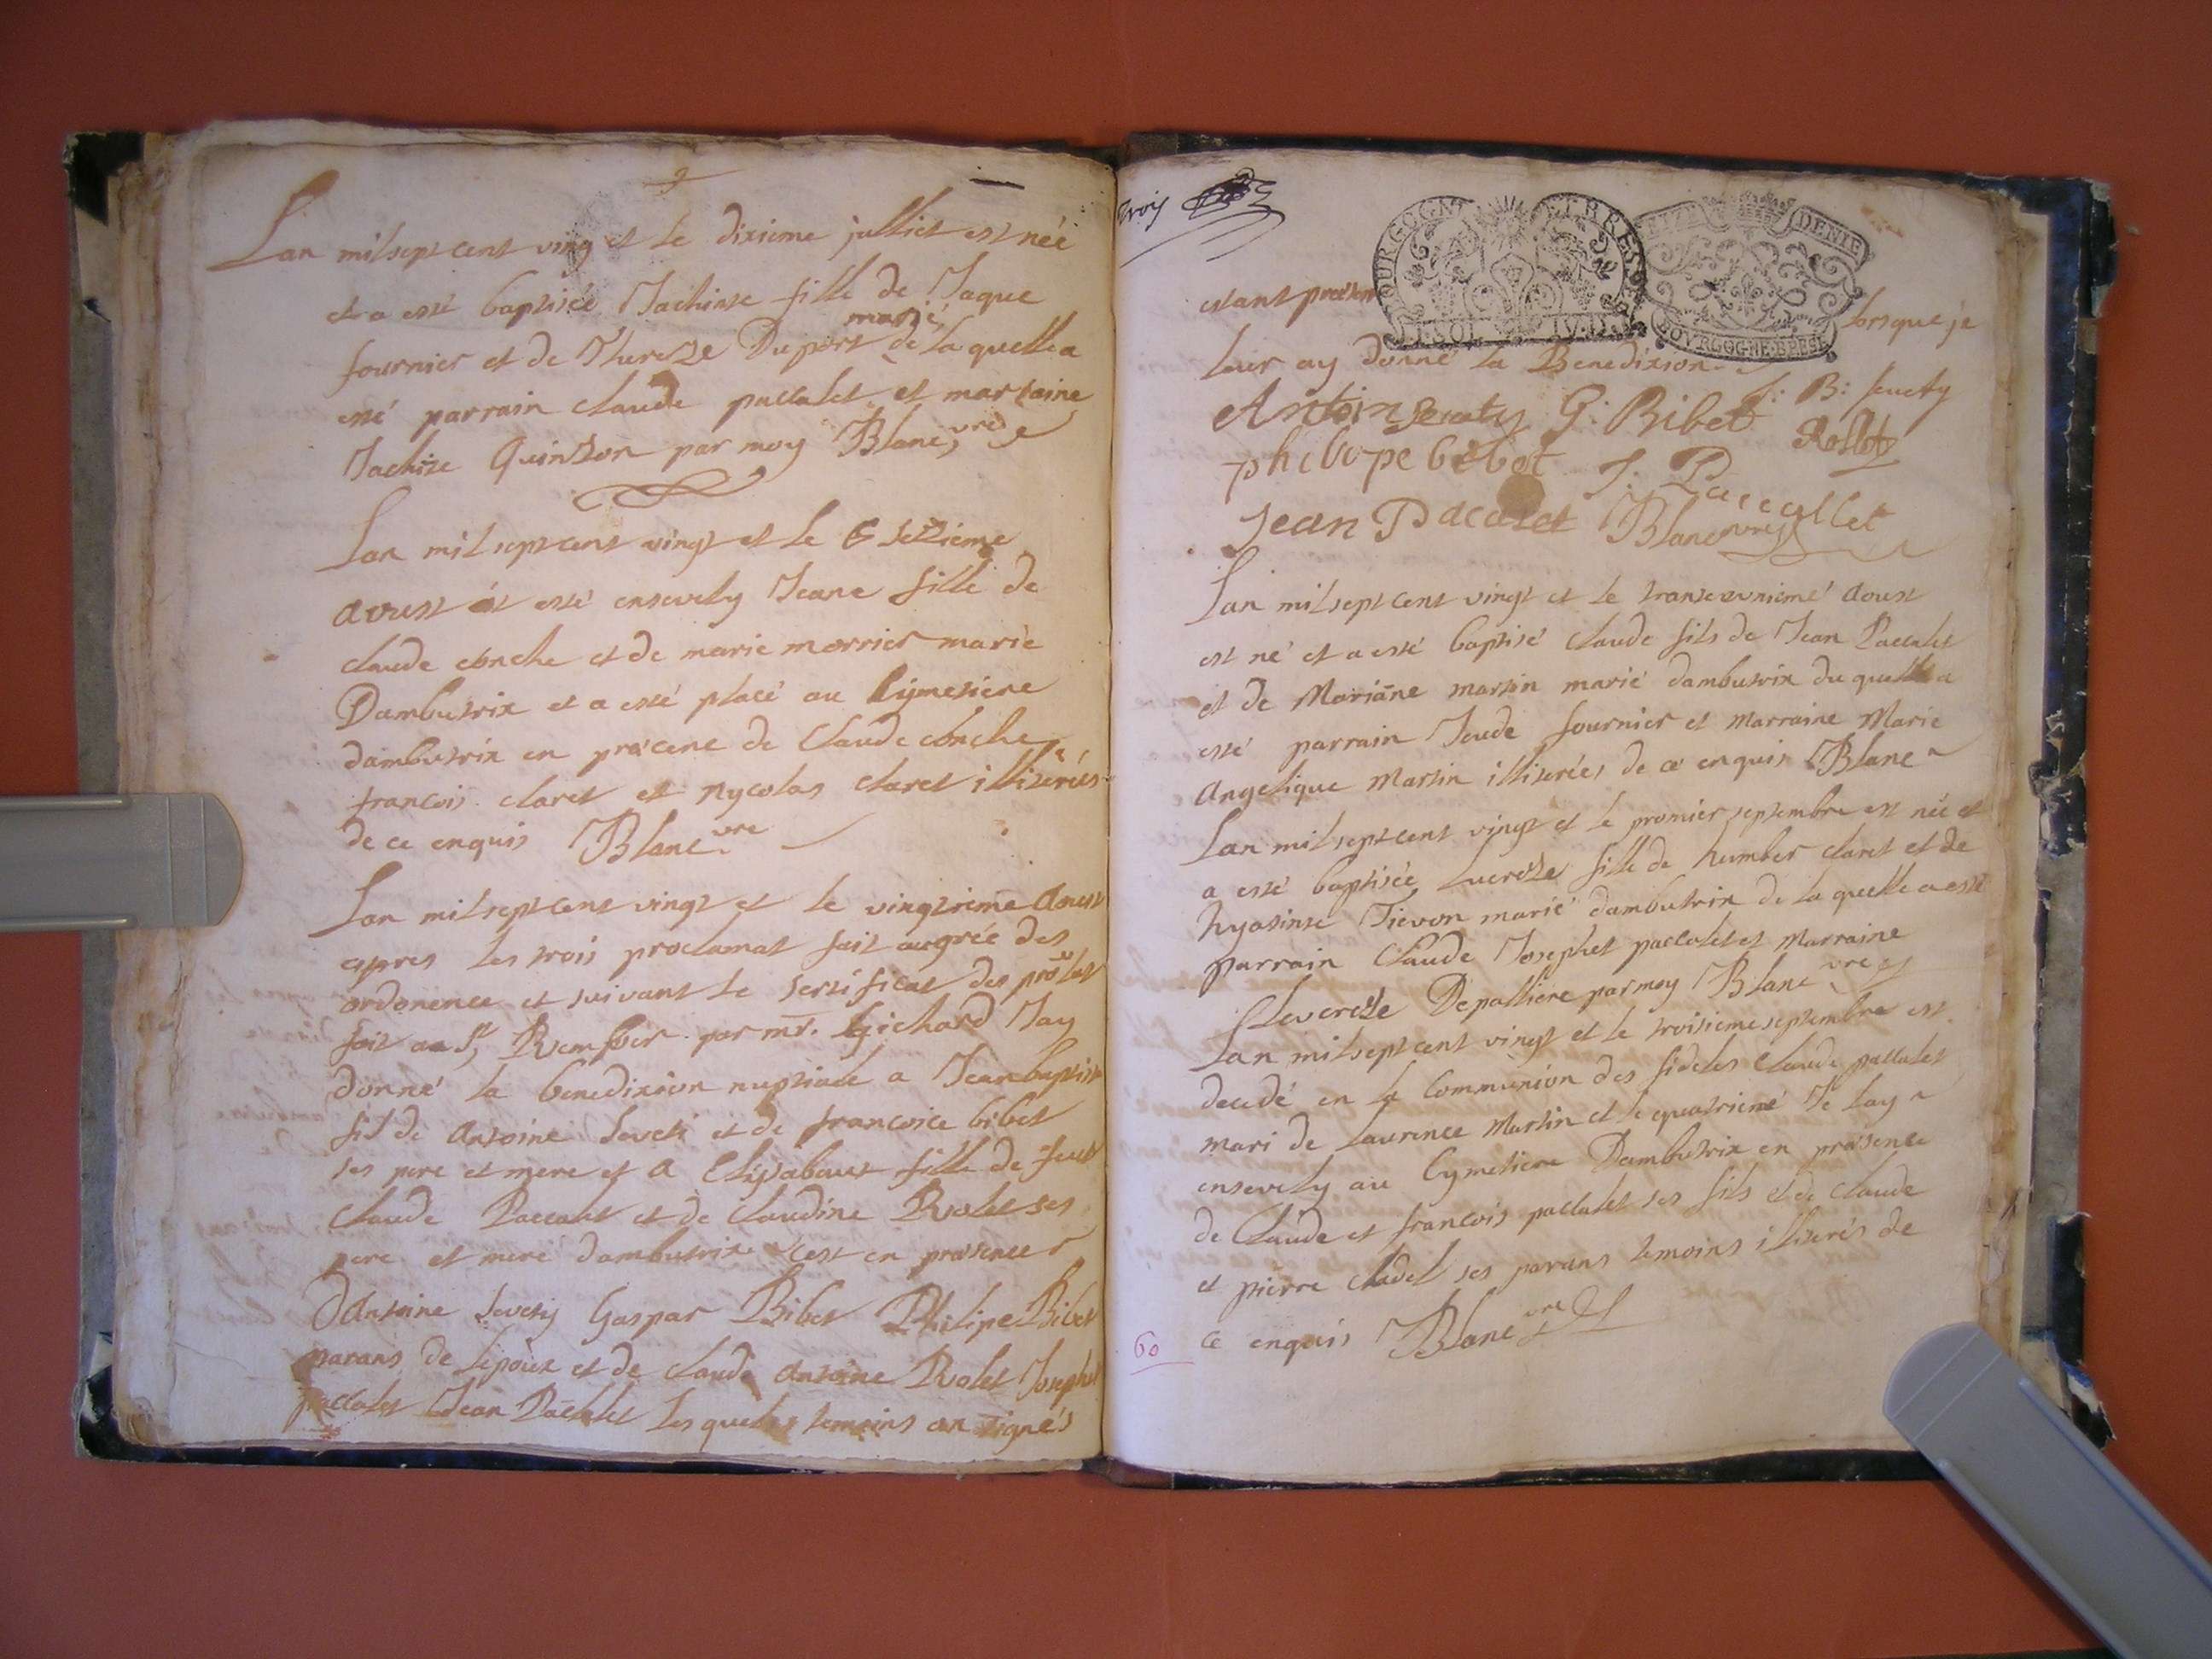 Lan mil sept cent ving et le dixieme julliet est née
et a esté baptisée Jachinte fille de Jaque
marié
fournier et de Thereze Duport de la quelle a
esté parrain claude pacalet et marraine
Jachite Quinson par moy Blanc, vre
Lan mil sept cent vingt et le setzieme
aoust at esté ensevely Jeane fille de
claude conche et de marie morrier marié
Dambutrix et a esté placé au Cymetiere
dambutrix en præcene de Claude conche
francois claret et nycolas claret illiterées
de ce enquis Blanc vre
Lan mil sept cent vingt et le vingtieme Aoust
apres les trois proclamat fait au grée des
ordonence et suivant le sertificat des
fait a St Rember par mr. Gichard Jay
donné la benedixion nuptiale a Jean baptiste
fil de Antoine Seveti et de francoise bibet
ses pere et mere et a Elisabaut fille de feut
Claude Paccalet et de Claudine Rolet ses
pere et mere dambutrix cest en præsence
Dantoine Sevety Gaspar Bibet Philipe Bibet
parans de lepoux et de claude Antoine Rolet Joseph
paccalet Jean Pacalet les quels temoins on signés
trois
BOURGOGNE BRESSE
DENIE
BOURGOGNE BRESSE
estant present lorsque je
leur ay donné la Benedixion
J: B: Sevety
Antoin Sevaty G: Bibet
Rollet
philipe bibot J: Paccallet
Jean Pacalet Blanc vre
Lan mil sept cent vingt et le trante unieme aoust
est né et a esté baptisé Claude fils de Jean Paccalet
et de Mariane martin marié dambutrix du quelle a
esté parrain Jeude fournier et marraine Marie
Angelique Martin illiterées de ce enquis Blanc
Lan mil sept cent vingt et le promier septembre est née et
a esté baptisée Lucrese fille de humber claret et de
hyasinte Tievon marié dambutrix de la quelle a esté
parrain Claude Josephet paccalet et Marraine
Leucresse Depalliere par moy Blanc vre
Lan mil sept cent vingt et le troisieme septembre est
decedé en la Communion des fideles Claude paccalet
mari de Laurence Martin et le quatrieme Je lay
ensevely au Cymetiere Dambutrix en præsence
de Claude et francois paccalet ses fils et de Claude
et pierre Claret ses parans temoins illiterés de
60 ce enquis Blanc vre